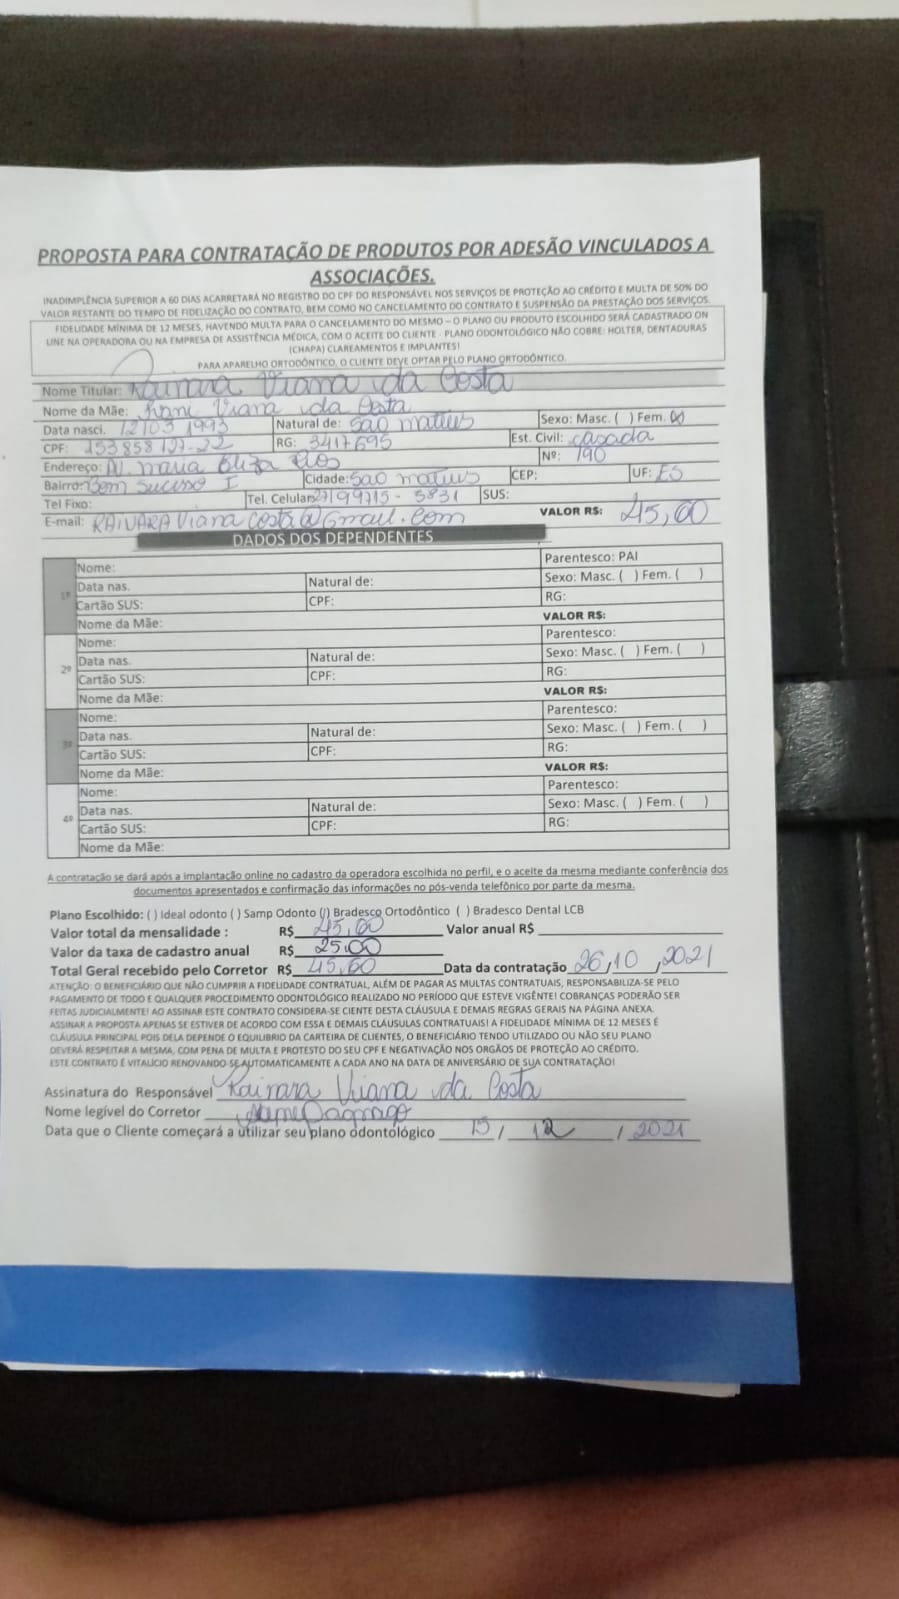 PROPOSTA PARA CONTRATAÇÃO DE PRODUTOS POR ADESÃO VINCULADOS A
ASSOCIACÕES.
INADIMPLÊNCIA SUPERIOR A 60 DIAS ACARRETARÁ NO REGISTRO DO CPF DO RESPONSÁVEL NOS SERVIÇOS DE PROTEÇÃO AO CRÉDITO E MULTA DE 50% DO
VALOR RESTANTE DO TEMPO DE FIDELIZAÇÃO DO CONTRATO, BEM COMO NO CANCELAMENTO DO CONTRATO E SUSPENSÃO DA PRESTAÇÃO DOS SERVIÇOS.
FIDELIDADE MÍNIMA DE 12 MESES, HAVENDO MULTA PARA O CANCELAMENTO DO MESMO – O PLANO OU PRODUTO ESCOLHIDO SERÁ CADASTRADO ON
LINE NA OPERADORA OU NA EMPRESA DE ASSISTÊNCIA MÉDICA, COM O ACEITE DO CLIENTE - PLANO ODONTOLÓGICO NÃO COBRE: HOLTER, DENTADURAS
(CHAPA) CLAREAMENTOS E IMPLANTES!
PARA APARELHO ORTODÔNTICO, O CLIENTE DEVE OPTAR PELO PLANO ORTODÔNTICO.
Nome Titular: Rainara Viana da Costa
Nome da Mãe: Viana da Costa
Data nasci. 12/03 1993 Natural de: São mateus Sexo: Masc. ( ) Fem. (x)
CPF: 153 858 127-22 RG: 3417695 Est. Civil: casada
Endereço: Al. maria Eliza Rios Nº: 190
Bairro: Bom Sucesso I Cidade: São mateus CEP: UF: ES
Tel Fixo: Tel. Celular: 27) 99715 - 5831 SUS:
E-mail: Viana Costa@Gmail.com VALOR R$: 45,00
DADOS DOS DEPENDENTES
1º Nome: Parentesco: PAI
Data nas. Natural de: Sexo: Masc. ( ) Fem. ( )
Cartão SUS: CPF: RG:
Nome da Mãe: VALOR R$:
2º Nome: Parentesco:
Data nas. Natural de: Sexo: Masc. ( ) Fem. ( )
Cartão SUS: CPF: RG:
Nome da Mãe: VALOR R$:
3º Nome: Parentesco:
Data nas. Natural de: Sexo: Masc. ( ) Fem. ( )
Cartão SUS: CPF: RG:
Nome da Mãe: VALOR R$:
4º Nome: Parentesco:
Data nas. Natural de: Sexo: Masc. ( ) Fem. ( )
Cartão SUS: CPF: RG:
Nome da Mãe:
A contratação se dará após a implantação online no cadastro da operadora escolhida no perfil, e o aceite da mesma mediante conferência dos
documentos apresentados e confirmação das informações no pós-venda telefônico por parte da mesma.
Plano Escolhido: ( ) Ideal odonto ( ) Samp Odonto (/) Bradesco Ortodôntico ( ) Bradesco Dental LCB
Valor total da mensalidade : R$ 45,00 Valor anual R$
Valor da taxa de cadastro anual R$ 25.00
Total Geral recebido pelo Corretor R$ 45,60 Data da contratação 26,10,2021
ATENÇÃO: O BENEFICIÁRIO QUE NÃO CUMPRIR A FIDELIDADE CONTRATUAL, ALÉM DE PAGAR AS MULTAS CONTRATUAIS, RESPONSABILIZA-SE PELO
PAGAMENTO DE TODO E QUALQUER PROCEDIMENTO ODONTOLÓGICO REALIZADO NO PERÍODO QUE ESTEVE VIGÊNTE! COBRANÇAS PODERÃO SER
FEITAS JUDICIALMENTE! AO ASSINAR ESTE CONTRATO CONSIDERA-SE CIENTE DESTA CLÁUSULA E DEMAIS REGRAS GERAIS NA PÁGINA ANEXA.
ASSINAR A PROPOSTA APENAS SE ESTIVER DE ACORDO COM ESSA E DEMAIS CLÁUSULAS CONTRATUAIS! A FIDELIDADE MÍNIMA DE 12 MESES É
CLÁUSULA PRINCIPAL POIS DELA DEPENDE O EQUILIBRIO DA CARTEIRA DE CLIENTES, O BENEFICIÁRIO TENDO UTILIZADO OU NÃO SEU PLANO
DEVERÁ RESPEITAR A MESMA, COM PENA DE MULTA E PROTESTO DO SEU CPF E NEGATIVAÇÃO NOS ORGÃOS DE PROTEÇÃO AO CRÉDITO.
ESTE CONTRATO É VITALÍCIO RENOVANDO-SE AUTOMATICAMENTE A CADA ANO NA DATA DE ANIVERSÁRIO DE SUA CONTRATAÇÃO!
Assinatura do Responsável Rainara Viana da Costa
Nome legível do Corretor
Data que o Cliente começará a utilizar seu plano odontológico 15 / 12 / 2021